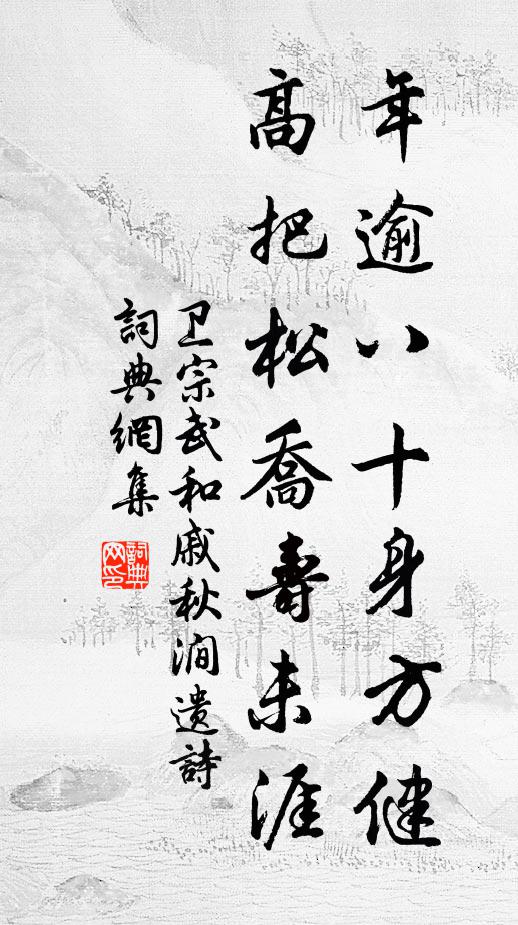 年逾八十身方健
高把松喬壽未涯
卫宗武和戚秋澗遗詩
詞典網集
詞典网印